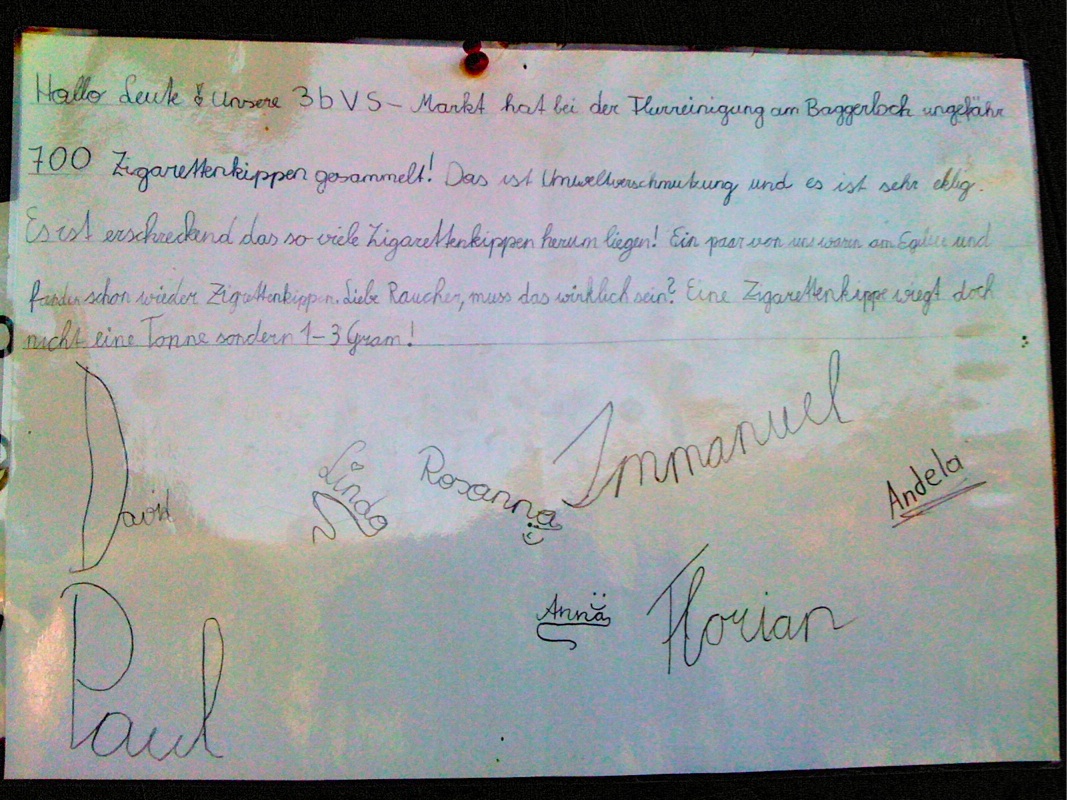 Hallo Leute ! Unsere 3b VS - Markt hat bei der Flurreinigung am Baggerloch ungefähr
700 Zigarettenkippen gesammelt! Das ist Umweltverschmutzung und es ist sehr eklig.
Es ist erschreckend das so viele Zigarettenkippen herum liegen! Ein paar von uns waren am und
fanden schon wieder Zigrettenkippen. Liebe Raucher, muss das wirklich sein? Eine Zigarettenkippe wiegt doch
nicht eine Tonne sondern 1-3 Gram!
David
Linda
Rosanna
Immanuel
Andela
Paul
Anna
Florian